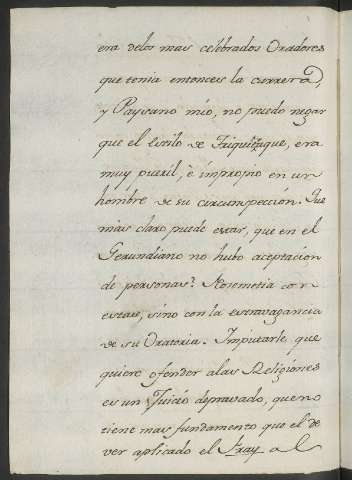 era delos mas celebrados Oradores
que tenia entonces la carrera,
y Paysano mio, no puedo negar
que el estilo de Triquitraque, era
muy pueril, è impropio en un
hombre de su circunspección. Que
mas claro puede estar, que en el
Gerundiano no hubo aceptacion
de personas? No se metia con
estas, sino con la extravagancia
de su Oratoria. Imputarle, que
quiere ofender alas Religiones
es un Juicio depravado, que no
tiene mas fundamento que el de
ver aplicado el Fray al